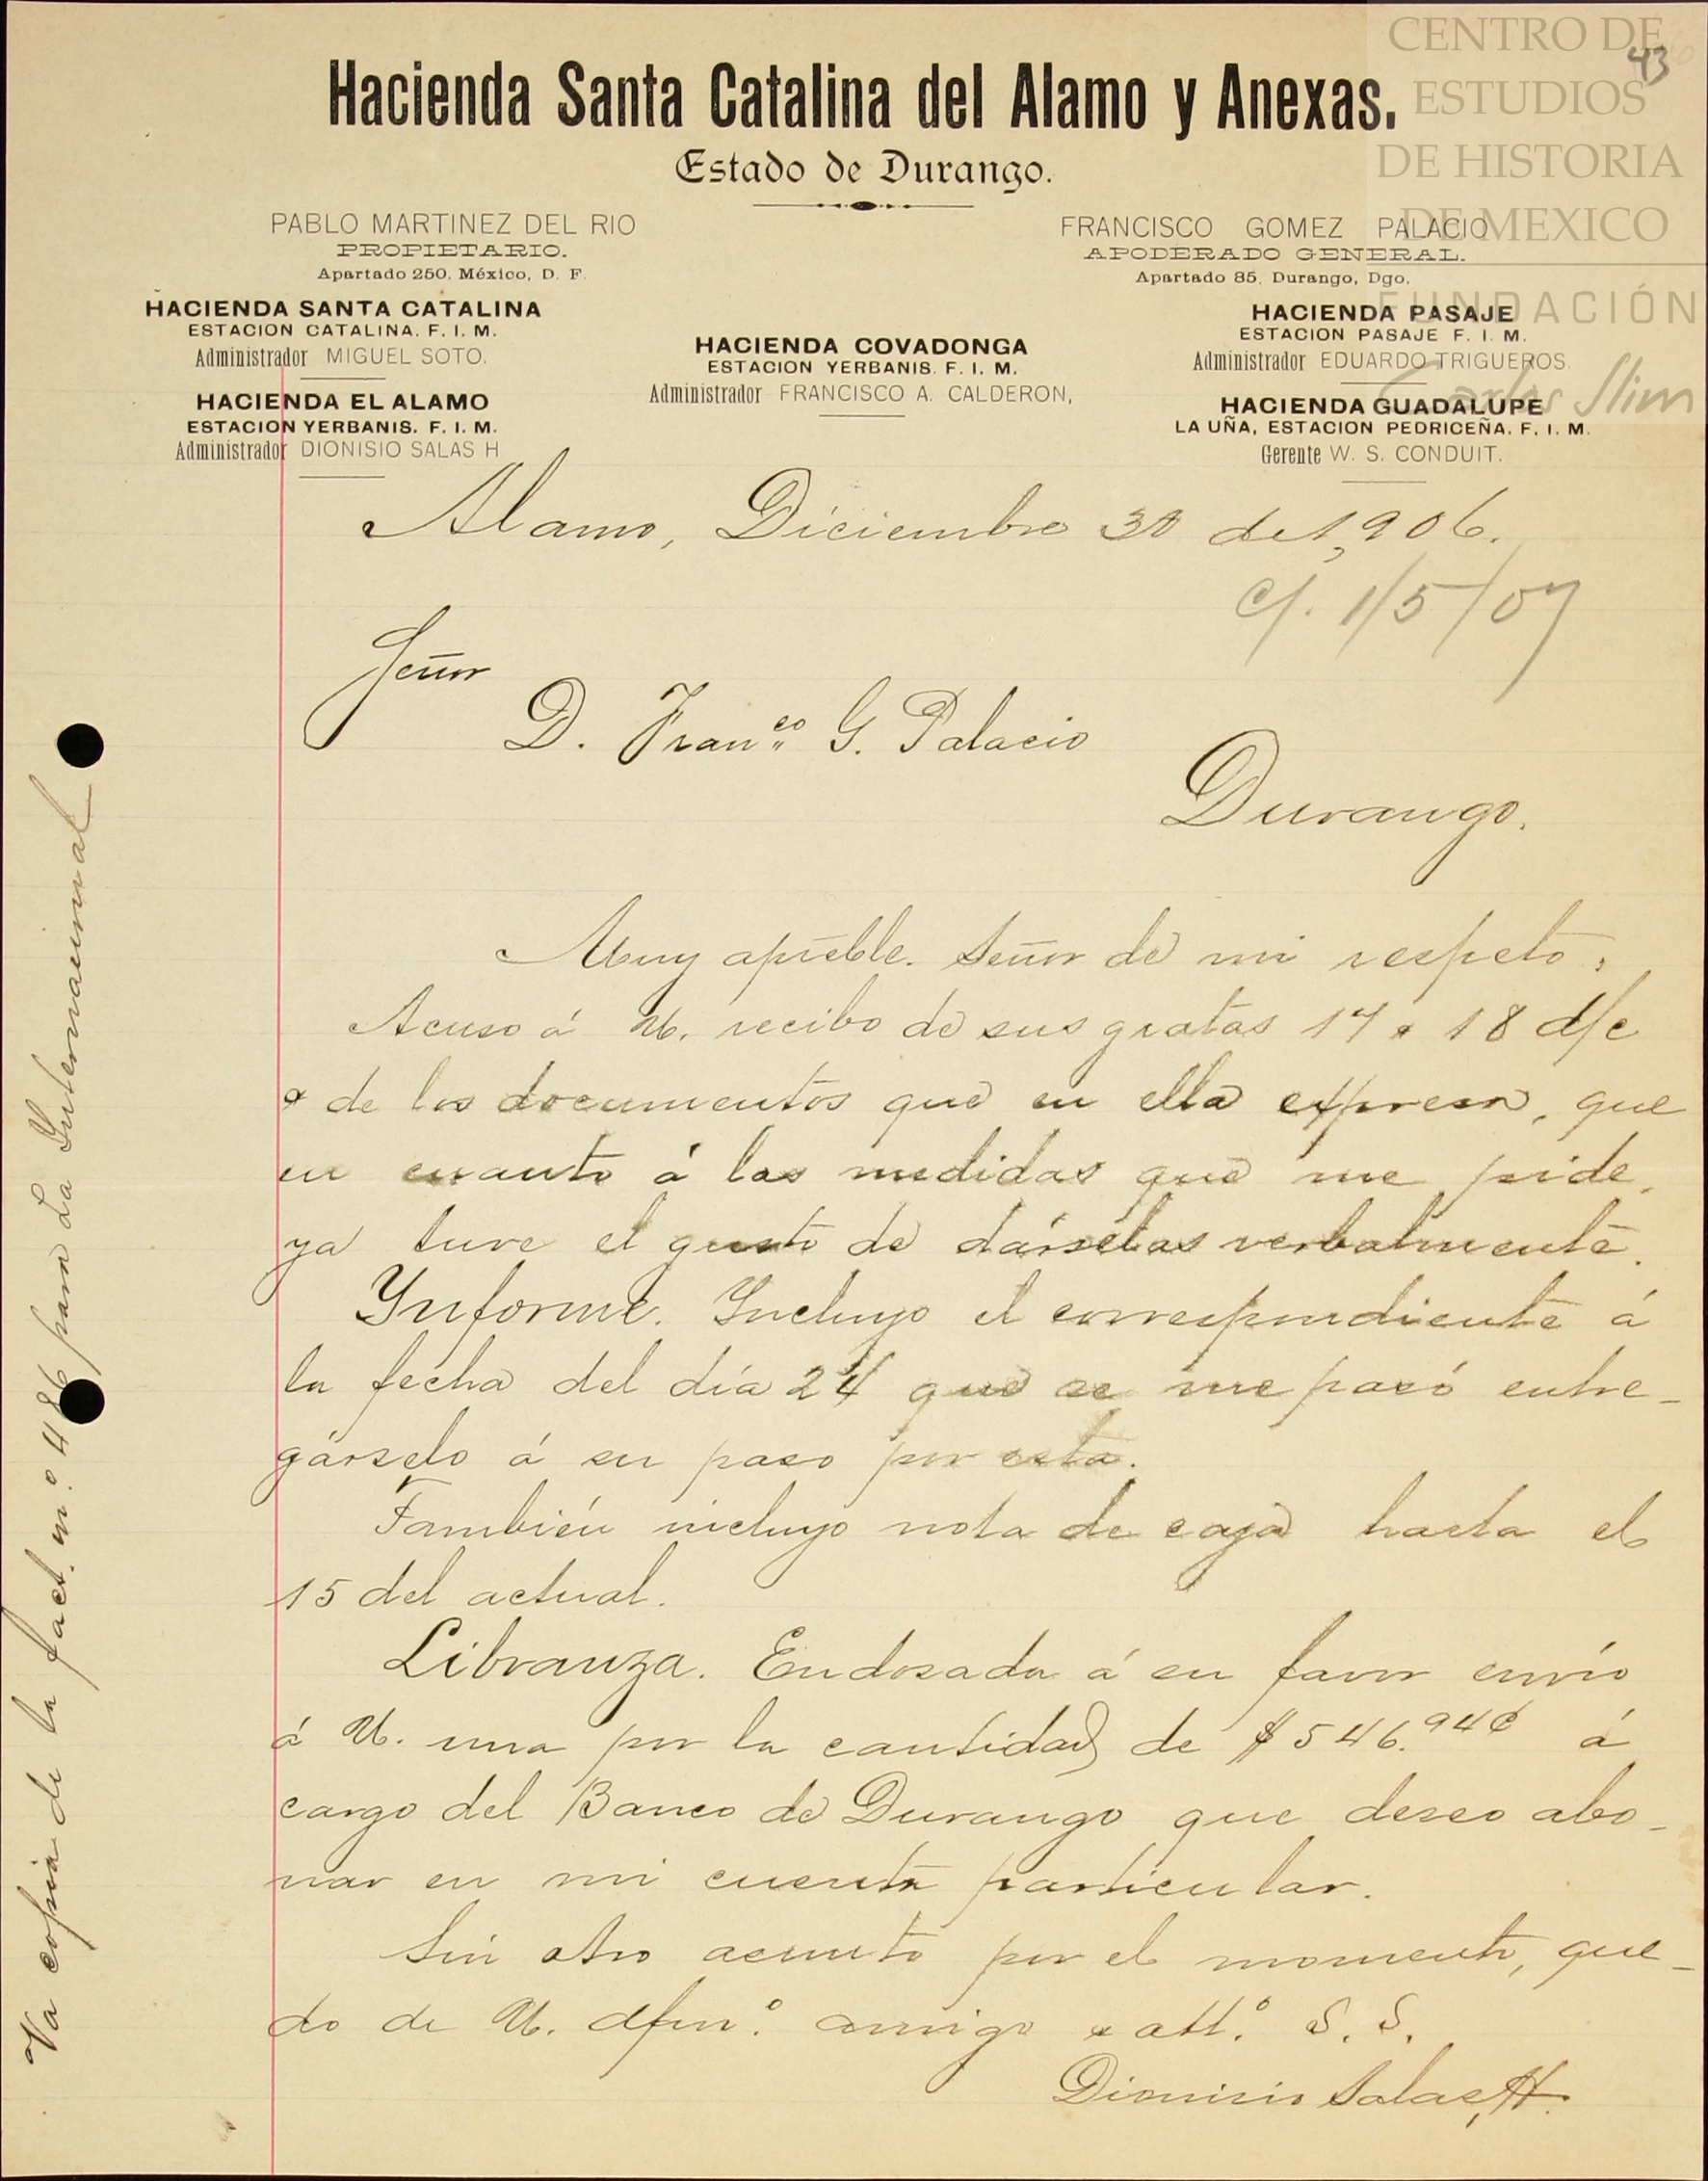 CENTRO DE
ESTUDIOS
DE HISTORIA
DE MEXICO
FUNDACIÓN
Carlos Slim
43
Hacienda Santa Catalina del Alamo y Anexas.
Estado de Durango.
PABLO MARTINEZ DEL RIO
PROPIETARIO.
Apartado 250. México, D. F.
FRANCISCO GOMEZ PALACIO
APODERADO GENERAL.
Apartado 85, Durango, Dgo.
HACIENDA SANTA CATALINA
ESTACION CATALINA. F. I. M.
Administrador MIGUEL SOTO.
HACIENDA EL ALAMO
ESTACION YERBANIS. F. I. M.
Administrador DIONISIO SALAS H
HACIENDA COVADONGA
ESTACION YERBANIS. F. I. M.
Administrador FRANCISCO A. CALDERON,
HACIENDA PASAJE
ESTACION PASAJE F. I. M.
Administrador EDUARDO TRIGUEROS.
HACIENDA GUADALUPE
LA UÑA, ESTACION PEDRICEÑA. F. I. M.
Gerente W. S. CONDUIT.
Alamo, Diciembre 30 de 1,906.
c/. 1/5/07
Señor
D. Fran.co G. Palacio
Durango.
Muy apreble. Señor de mi respeto:
Acuso á U. recibo de sus gratas 17 & 18 d/c
& de los documentos que en ella expresa, que
en cuanto á las medidas que me pide,
ya tuve el gusto de dárselas verbalmente.
Ynforme. Yncluyo el correspondiente á
la fecha del día 24 que se me pasó entre-
gárselo á su paso por esta.
También incluyo nota de caja hasta el
15 del actual.
Libranza. Endosada á su favor envío
á U. una por la cantidad de $546.94¢ á
cargo del Banco de Durango que deseo abo-
nar en mi cuenta particular.
Sin otro asunto por el momento, que-
do de U. afmo. amigo & att.o S. S.
Dionisio Salas H.
Va copia de la fact. n.o 486 para La Internacional